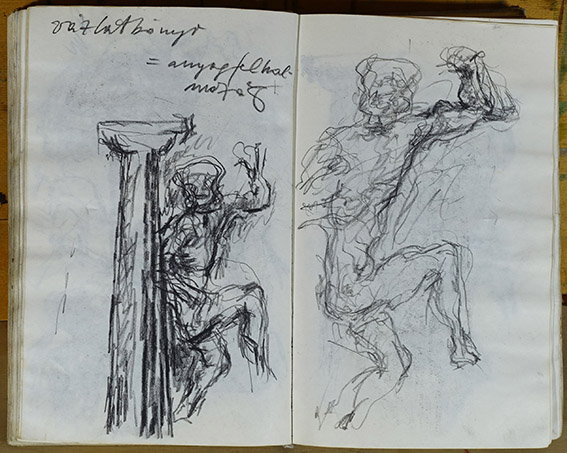 vázlatkönyv
= anyagfelhal-
mozás